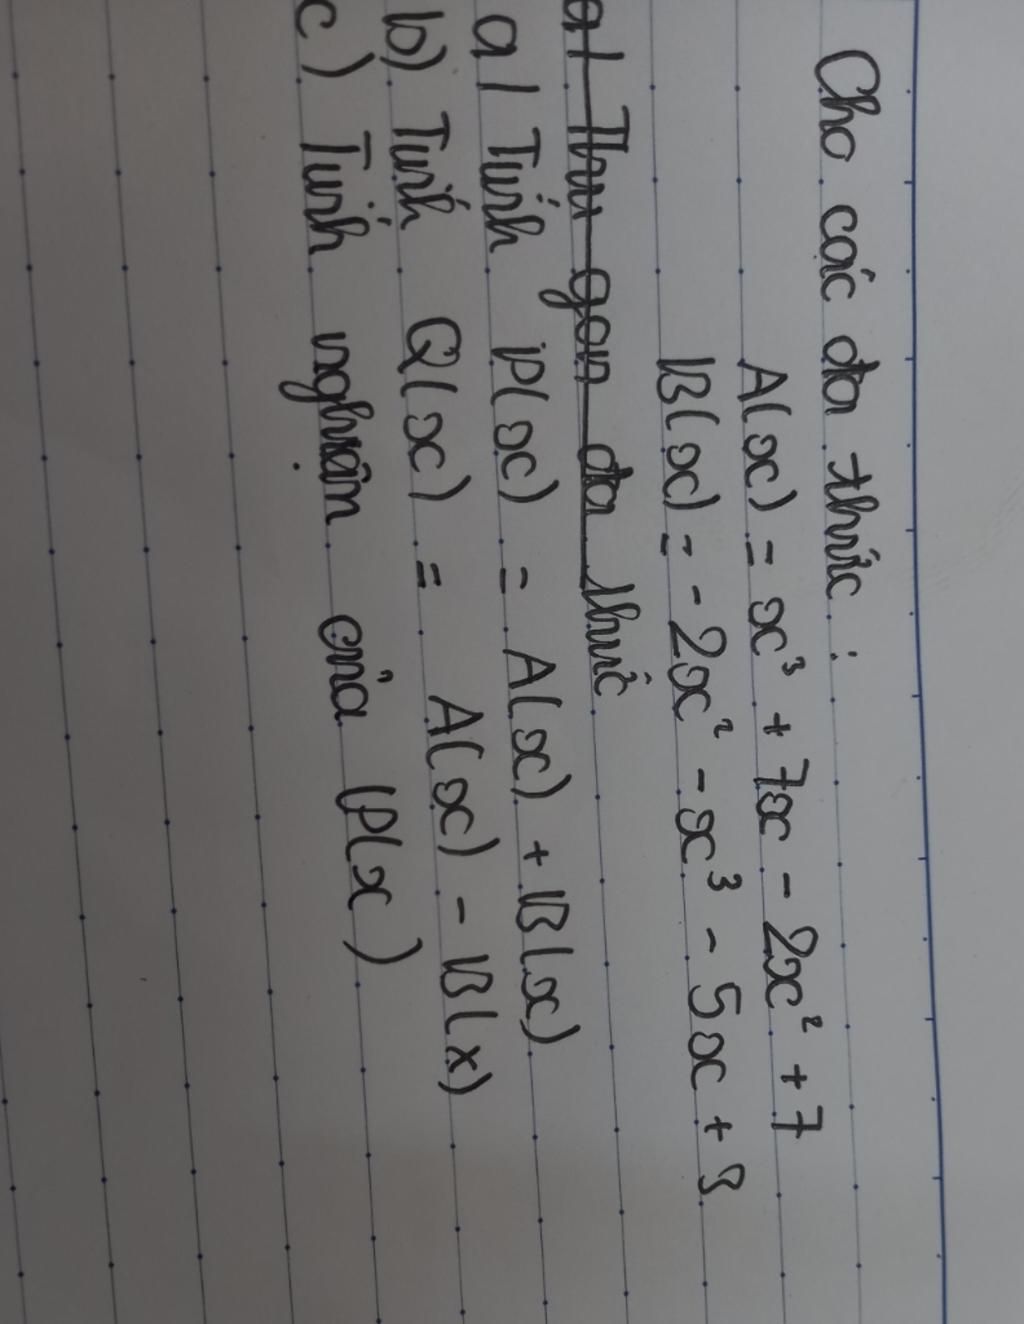 Cho các đa thức :
A(x) = x³ + 7x - 2x² + 7
B(x) = - 2x² - x³ - 5x + 9
a) Thu gọn đa thức
a) Tính P(x) = A(x) + B(x)
b) Tính Q(x) = A(x) - B(x)
c) Tính nghiệm của P(x)